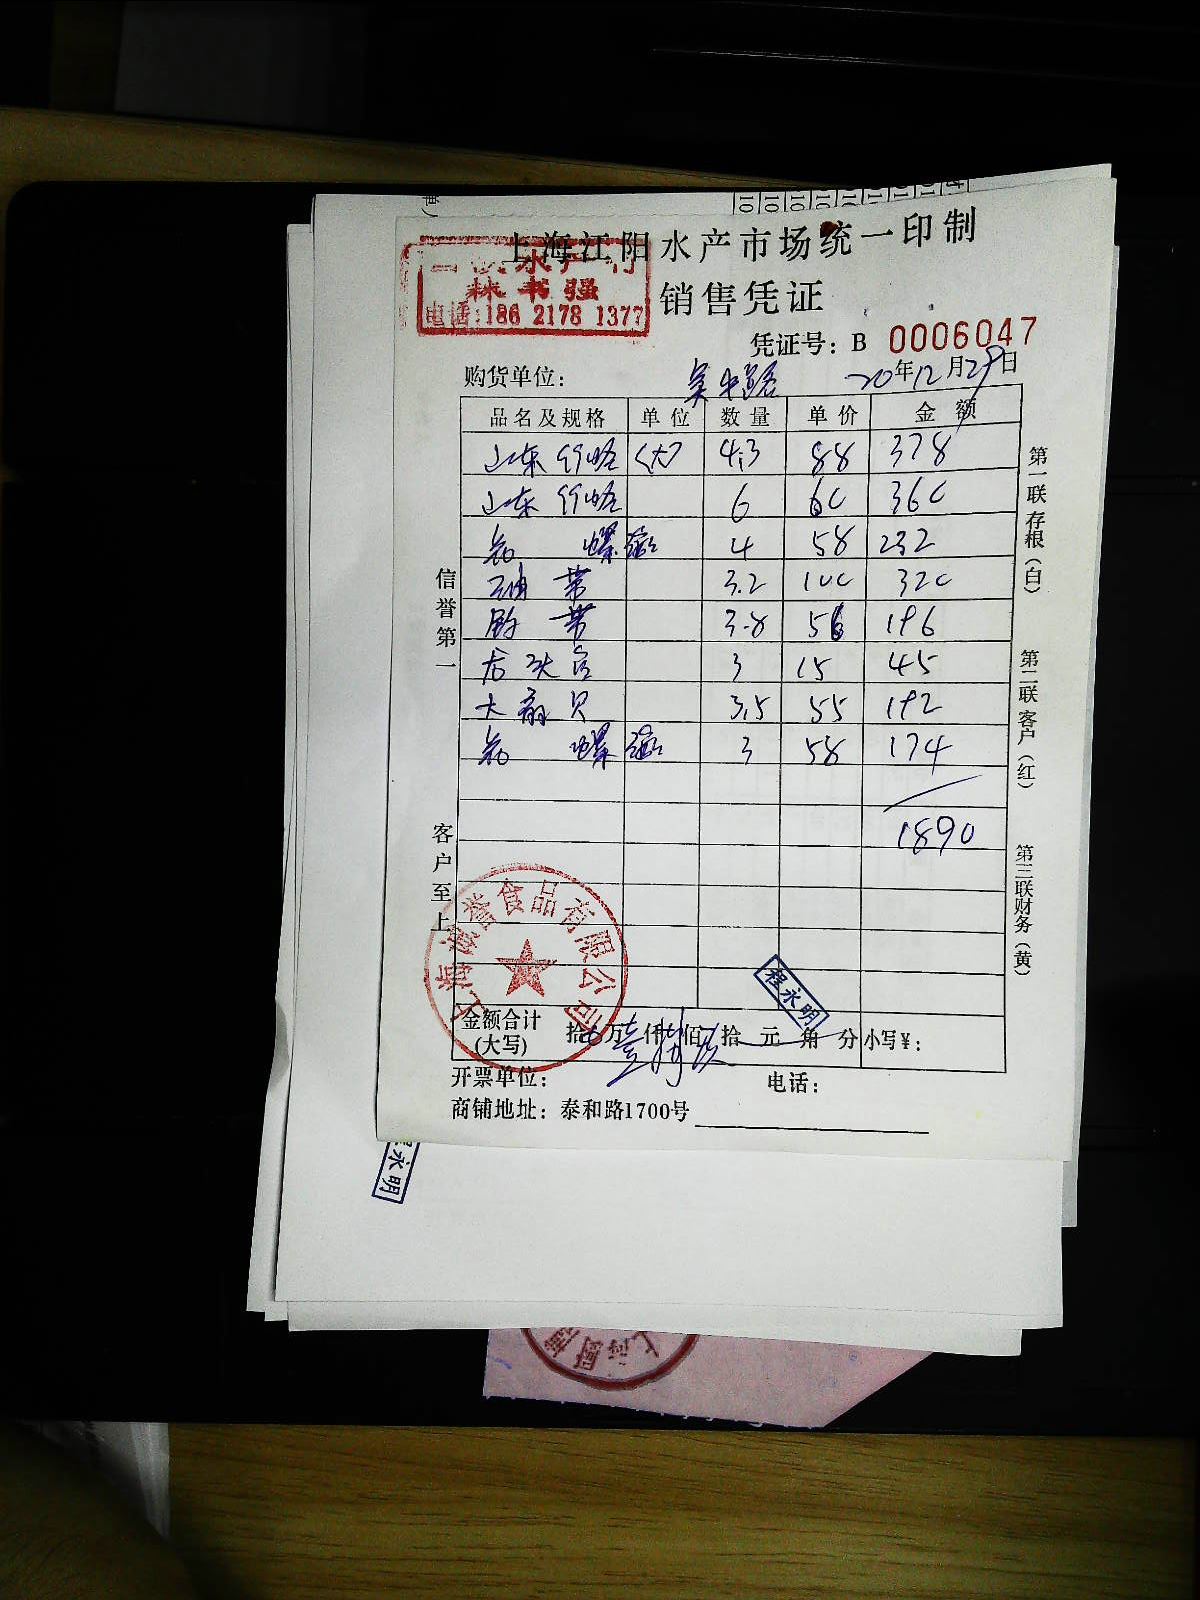 上海江阳水产市场统一印制
水产行
林书强
电话:186 2178 1377
销售凭证
凭证号: B 0006047
购货单位: 20年12月29日
品名及规格 单位 数量 单价 金额
山东 <大> 4.3 88 378
山东 6 60 360
螺 4 58 232
带 3.2 100 320
带 3.8 196
龙头 3 15 45
大扇贝 3.5 55 192
螺 3 58 174
1890
信誉第一
客户至上
第一联存根(白)
第二联客户(红)
第三联财务(黄)
上海诚誉食品有限公司
程永明
金额合计(大写) 拾 万 仟 佰 拾 元 角 分 小写¥:
开票单位: 电话:
商铺地址: 泰和路1700号
永明